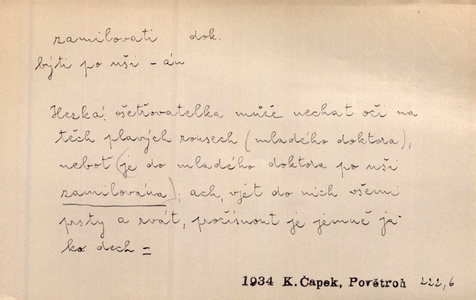 zamilovati dok.
býti po uši – án
Hezká, ošetřovatelka může nechat oči na
těch plavých vousech (mladého doktora),
neboť (je do mladého doktora po uši
zamilována); ach, vjet do nich všemi
prsty a rvát, pročísnout je jemně ja-
ko dech =
1934 K. Čapek, Povětroň 222,6